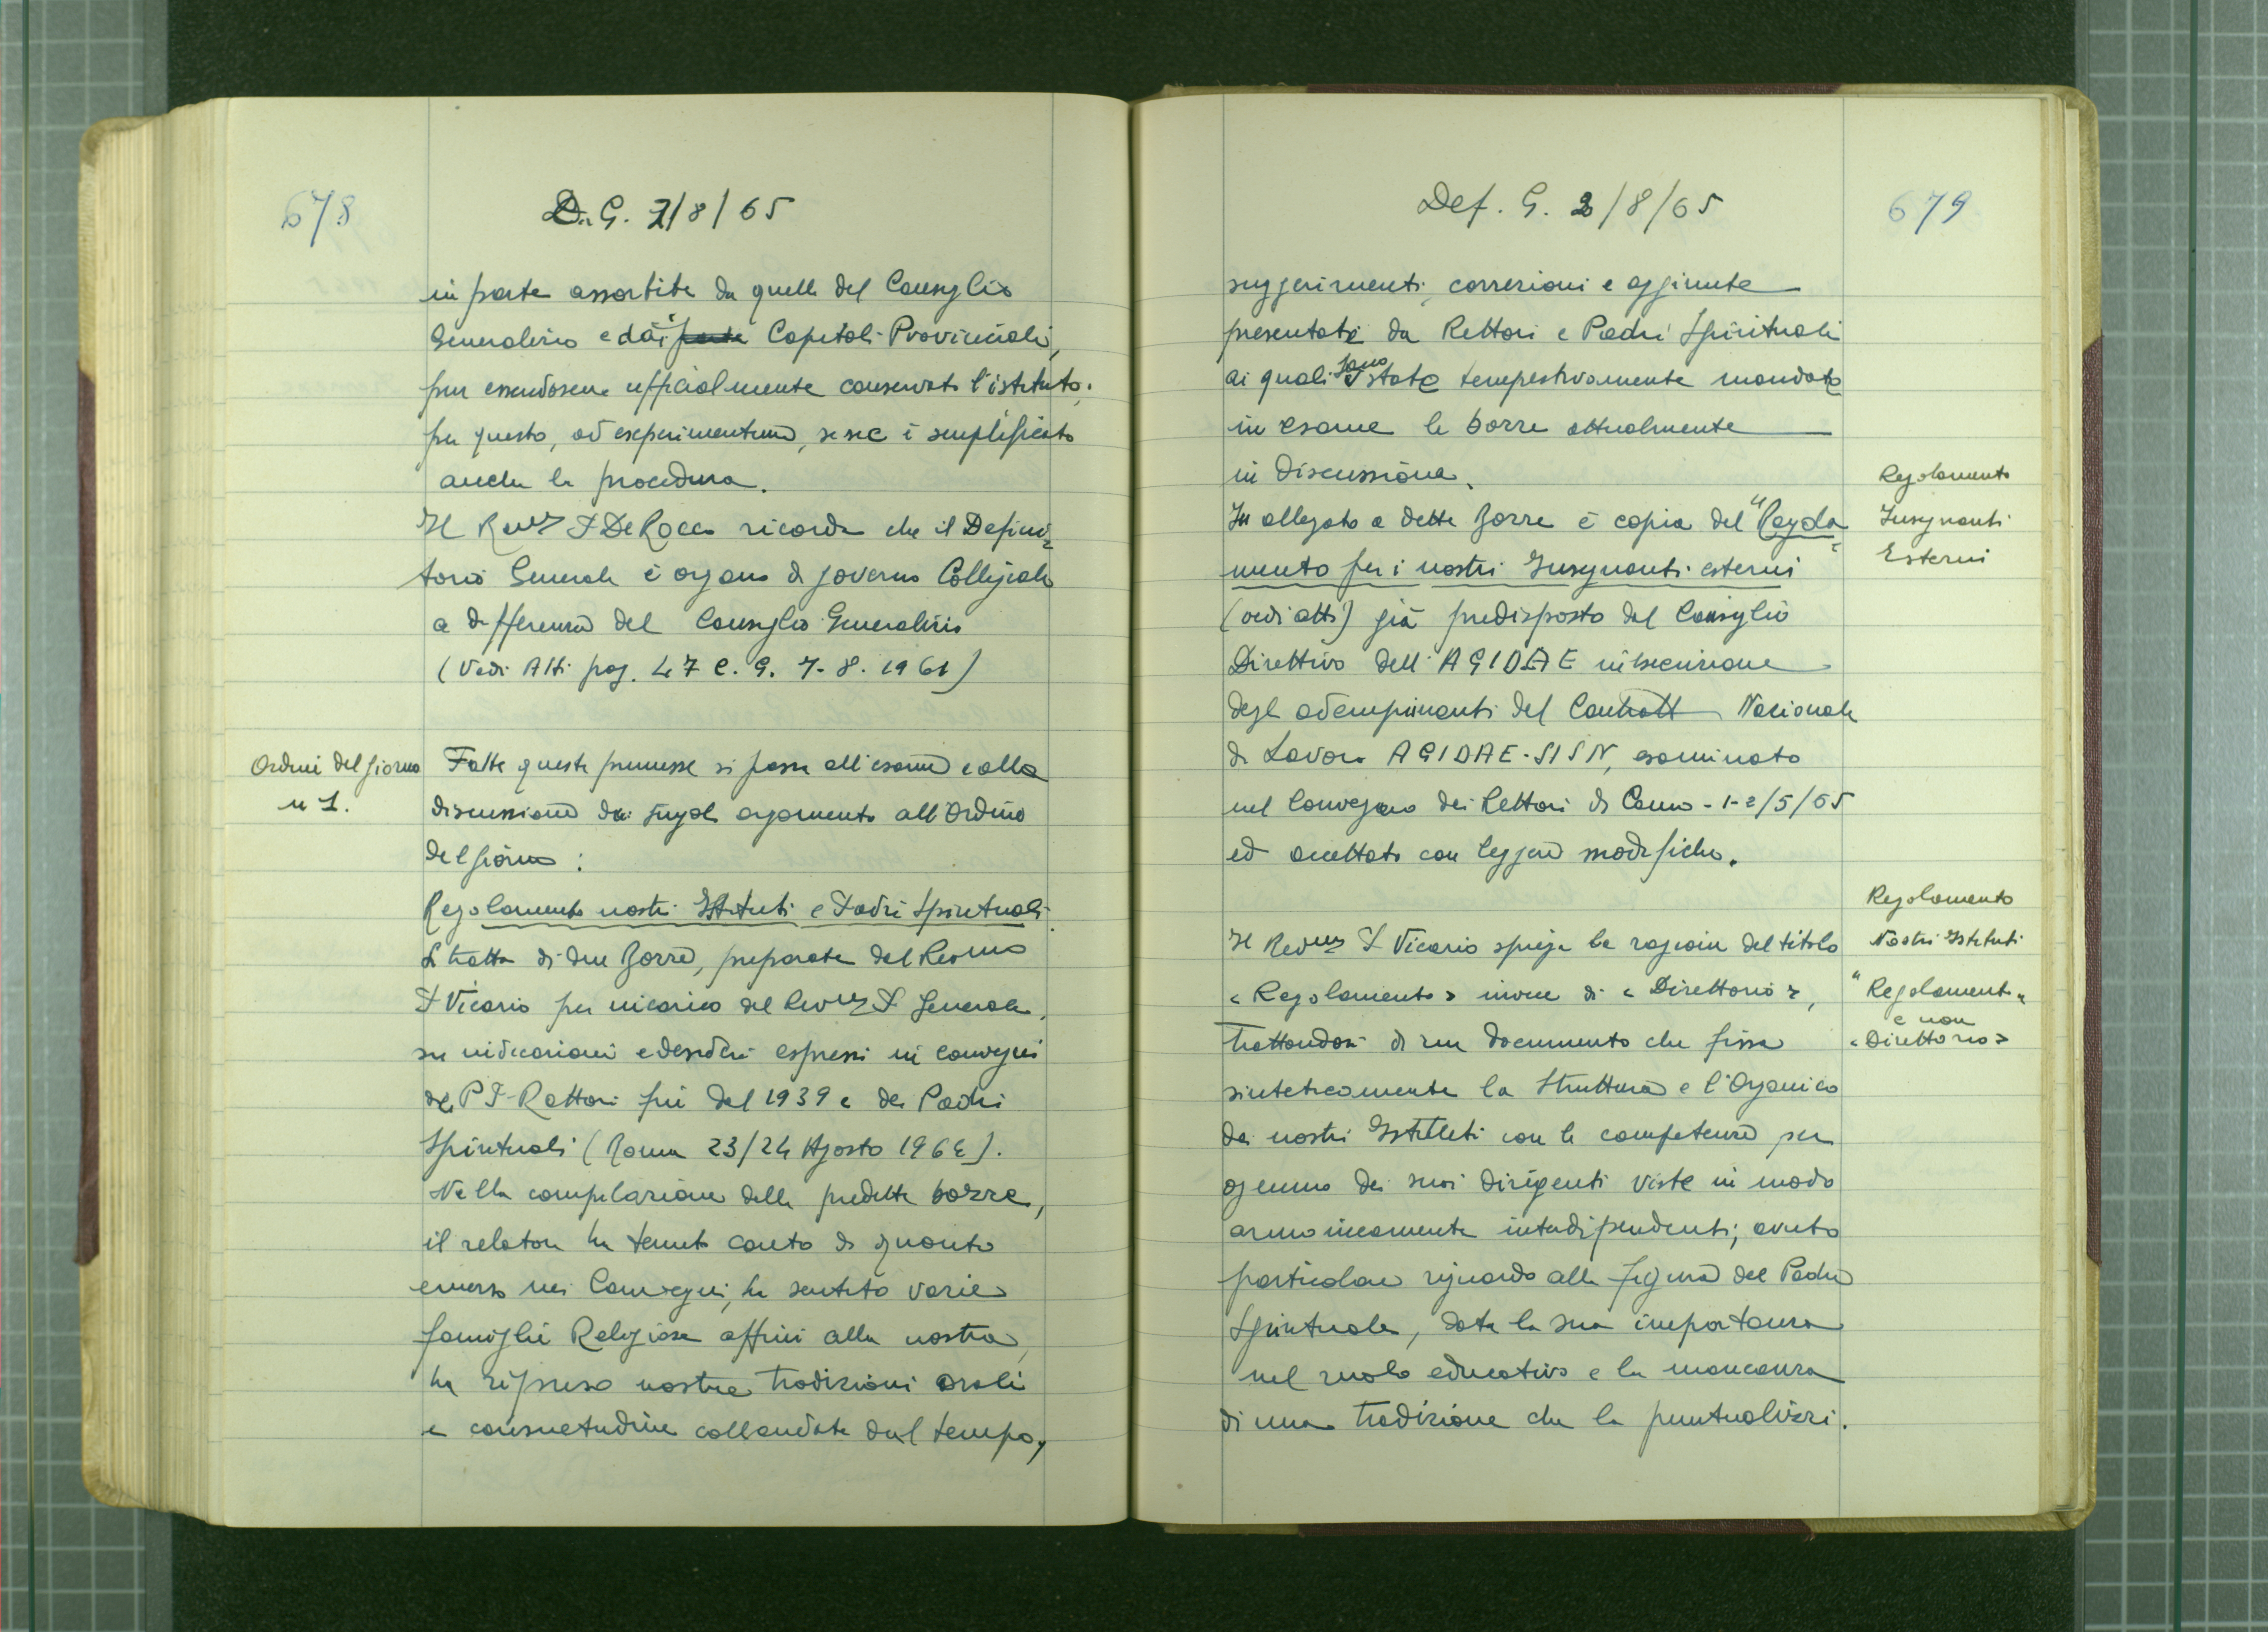 678
D. G. 2/8/65
in parte assorbite da quelle del Consiglio
Generalizio e dai Capitoli Provinciali,
pur essendosene ufficialmente conservato l'istituto;
per questo, ad experimentum, se ne è semplificato
anche la procedura.
Il Rev.mo P. De Rocco ricorda che il Defini-
torio Generale è organo di governo Collegiale
a differenza del Consiglio Generalizio
(Vedi Atti pag. 47 C. G. 7-8. 1961)
Ordini del giorno
n 1.
Fatte queste premesse si passa all'esame e alla
discussione dei singoli argomento all'Ordine
del giorno:
Regolamento nostri Istituti e Padri Spirituali.
Si tratta di due Bozze, preparate dal Rev.mo
P. Vicario per incarico del Rev.mo P. Generale,
su indicazioni e desideri espressi in convegni
dei P P. Rettori fin dal 1939 e dei Padri
Spirituali (Roma 23/24 Agosto 1964).
Nella compilazione delle predette bozze,
il relatore ha tenuto conto di quanto
emerso nei Convegni, ha sentito varie
famiglie Religiose affini alla nostra,
ha ripreso nostre tradizioni orali
e consuetudine collaudate dal tempo,
Def. G. 2/8/65
679
suggerimenti, correzioni e aggiunte
presentate da Rettori e Padri Spirituali
ai quali sono state tempestivamente mandate
in esame le bozze attualmente
in discussione.
In allegato a dette Bozze è copia del "Regola
mento per i nostri Insegnanti esterni"
(vedi atti) già predisposto dal Consiglio
Direttivo dell'AGIDAE in esecuzione
degli adempimenti del Contratto Nazionale
di Lavoro AGIDAE-SISN, esaminato
nel Convegno dei Rettori di Como - 1-2/5/65
ed accettato con leggere modifiche.
Regolamento
Insegnanti
Esterni
Il Rev.mo P. Vicario spiega la ragione del titolo
«Regolamento» invece di «Direttorio»,
trattandosi di un documento che fissa
sinteticamente la Struttura e l'Organico
dei nostri Istituti con le competenze per
ognuno dei suoi dirigenti viste in modo
armonicamente interdipendenti; avuto
particolare riguardo alla figura del Padre
Spirituale, data la sua importanza
nel ruolo educativo e la mancanza
di una tradizione che la puntualizzi.
Regolamento
Nostri Istituti
"Regolamento"
e non
«Direttorio»